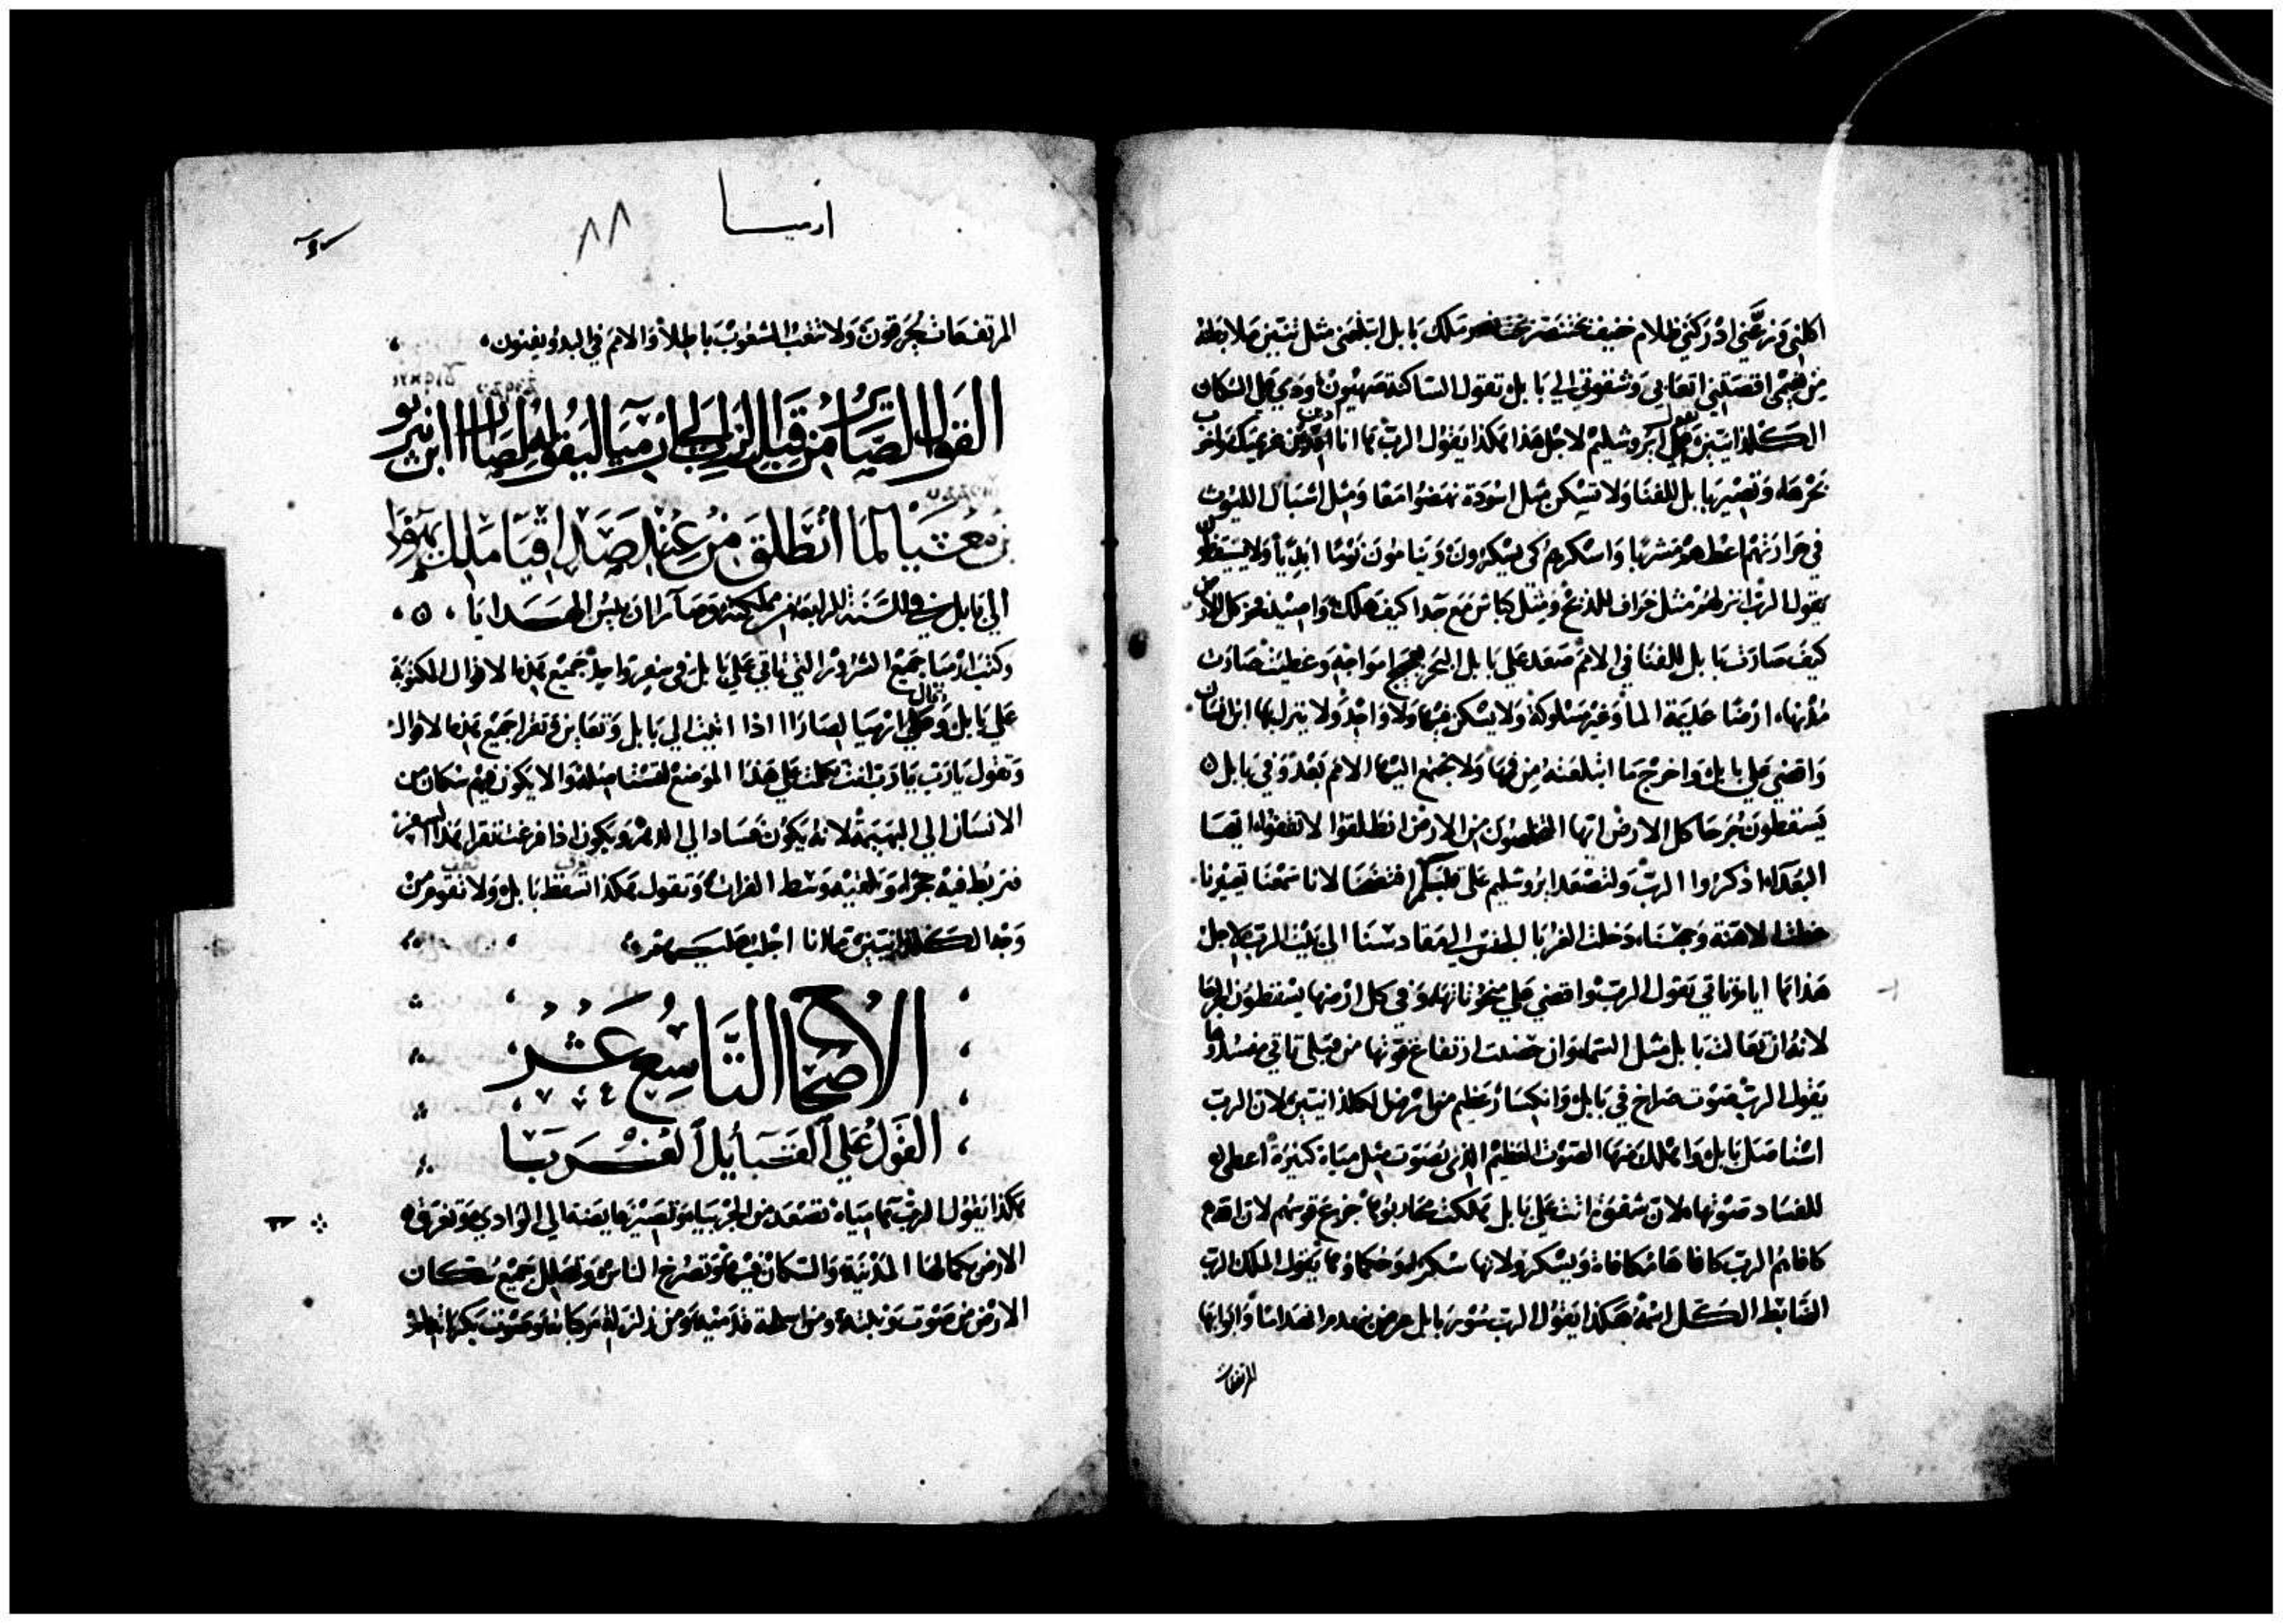 اكلني ومزعني ادركني ظلام خفيف بختنصر ملك بابل ابتلعني مثل تنين ملا بطنه
من نعمي اقصتني اتعابي وشقوتي الي بابل تقول الساكنة صهيون ودمي علي السكان
الكلدانيين تقول ايروشليم لاجل هذا هكذا يقول الرب ها انا ادين غريمك واخرب
بحرها وتصير بابل للفنا ولا تسكن مثل اسودة نهضوا معا ومثل اشبال الليوث
في حرارتهم اعطهم مشربا واسكرهم كي يسكرون ويناموا نوما ابديا ولا يستيقظون
يقول الرب انزلهم مثل خراف للذبح ومثل كباش مع جدا كيف هلك واصيد فخر كل الارض
كيف صارت بابل للفنا في الامم صعد علي بابل البحر بعجيج امواجه وغطيت صارت
مدنها ارضا عديمة الما وغير مسلوكة ولا يسكن فيها ولا واحد ولا ينزل بها ابن انسان
واقضي علي بابل واخرج ما ابتلعته من فيها ولا تجتمع اليها الامم بعد وفي بابل
يسقطون جرحا كل الارض ايها المخلصون من الارض انطلقوا لا تقفوا ايضا
البعدا اذكروا الرب ولتصعد ايروشليم علي قلبكم افتضحنا لانا سمعنا تعييرنا
غطت الاهنة وجهنا دخلت الغربا الي مقادسنا الي بيت الرب لاجل
هذا ها ايام تاتي يقول الرب واقضي علي منحوتاتها وفي كل ارضها يسقطون الجرحا
لانه ان تعالت بابل مثل السما وان حصنت ارتفاع قوتها من قبلي تاتي مفسدوها
يقول الرب صوت صراخ في بابل وانكسار عظيم من ارض الكلدانيين لان الرب
استاصل بابل واهلك منها الصوت العظيم الذي يصوت مثل مياة كثيرة اعطي
للفساد صوتها لان شقوة اتت علي بابل هلكت محاربوها جزع قوسهم لان الله
كافاهم الرب كافا هامكافاة ويسكر ولانها سكر ابو حكماوها يقول الملك الرب
الضابط الكل اسمه هكذا يقول الرب سور بابل عرض يهدم انهداما وابوابها
المرتفعات
ارميا
٨٨
المرتفعات يحرقون ولا تتعب الشعوب باطلا والامم في البدو يفنون
القول الصاير من قبل الرب الي ارميا ليقوله لصارا ابن نيريو
بن معشيا لما انطلق من عند صداقيا ملك يهوذا
الي بابل في السنة الرابعة من مملكته وصارا ان ريس الهدايا
وكتب ارميا جميع الشرور التي تاتي علي بابل في سفر واحد جميع هذه الاقوال المكتوبة
علي بابل وقال ارميا لصارا اذا اتيت الي بابل وتعاين وتقرا جميع هذه الاقوال
وتقول يارب يارب انت تكلمت علي هذا الموضع لتستاصله والا يكون فيه سكان من
الانسان الي البهيمة لانه يكون فسادا الي الدهر ويكون اذا فرغت تقرا هذا السفر
فتربط فيه حجرا وتلقيه وسط الفرات وتقول هكذا تسقط بابل ولا تقوم من
وجه الكلدانيين ها انا اجلب عليهم
الاصحاح التاسع عشر
القول علي القبايل الغربا
هكذا يقول الرب ها مياة تصعد من الجربيا وتصير ها يضه الي الوادي وتغرق
الارض بكمالها المدينة والسكان فيها وتصرخ الناس وتصلل جميع سكان
الارض من صوت وثبته ومن اسلحة قدميه ومن زلزلة مركباته وصوت بكراتها